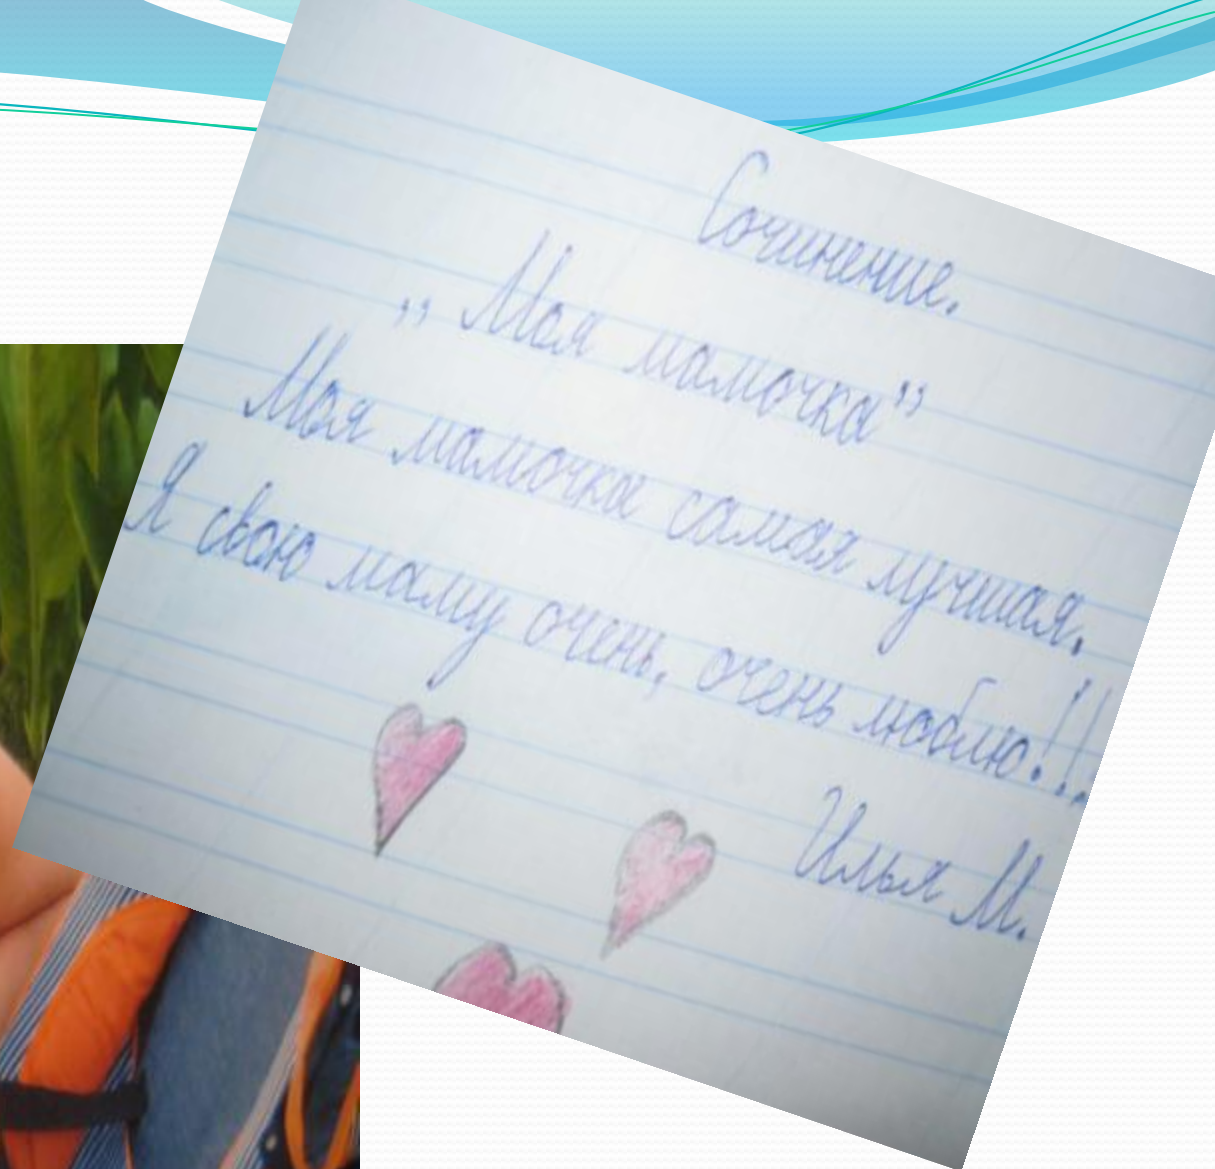 Сочинение.
„Моя мамочка”
Моя мамочка самая лучшая.
Я свою маму очень, очень люблю!!
Илья М.